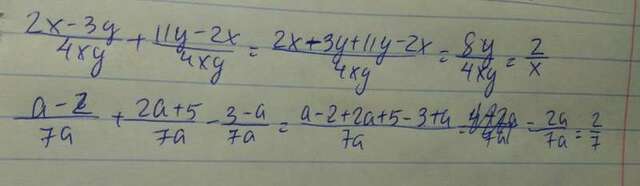 (2x-3y)/(4xy) + (11y-2x)/(4xy) = (2x-3y+11y-2x)/(4xy) = (8y)/(4xy) = 2/x
(a-2)/(7a) + (2a+5)/(7a) - (3-a)/(7a) = (a-2+2a+5-3+a)/(7a) = = (2a)/(7a) = 2/7